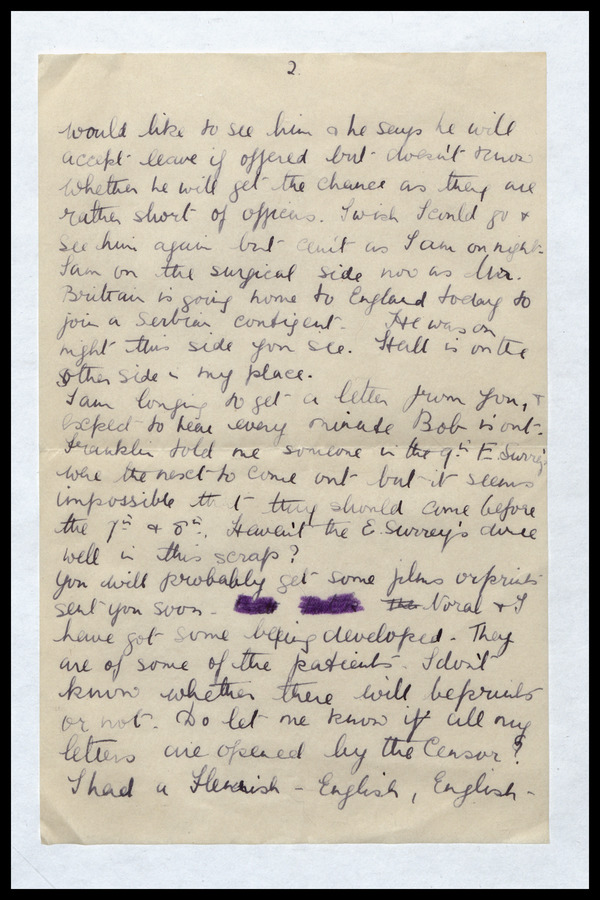 2.
would like to see him & he says he will
accept leave if offered but doesn't know
whether he will get the chance as they are
rather short of officers. I wish I could go &
see him again but can't as I am on night.
I am on the surgical side now as Mr.
Brittain is going home to England today to
join a Serbian contigent. He was on
night this side you see. Hall is on the
other side in my place.
I am longing to get a letter from you, &
expect to hear every minute Bob is out.
Franklin told me someone in the 9th E. Surrey
were the next to come out but it seems
impossible tht they should come before
the 7th & 8th. Haven't the E. Surrey's done
well in this scrap?
You will probably get some films or prints
sent you soon. The Nora & I
have got some being developed. They
are of some of the patients. I don't
know whether there will be prints
or not. Do let me know if all my
letters are opened by the Censor?
I had a Flemish - English, English -